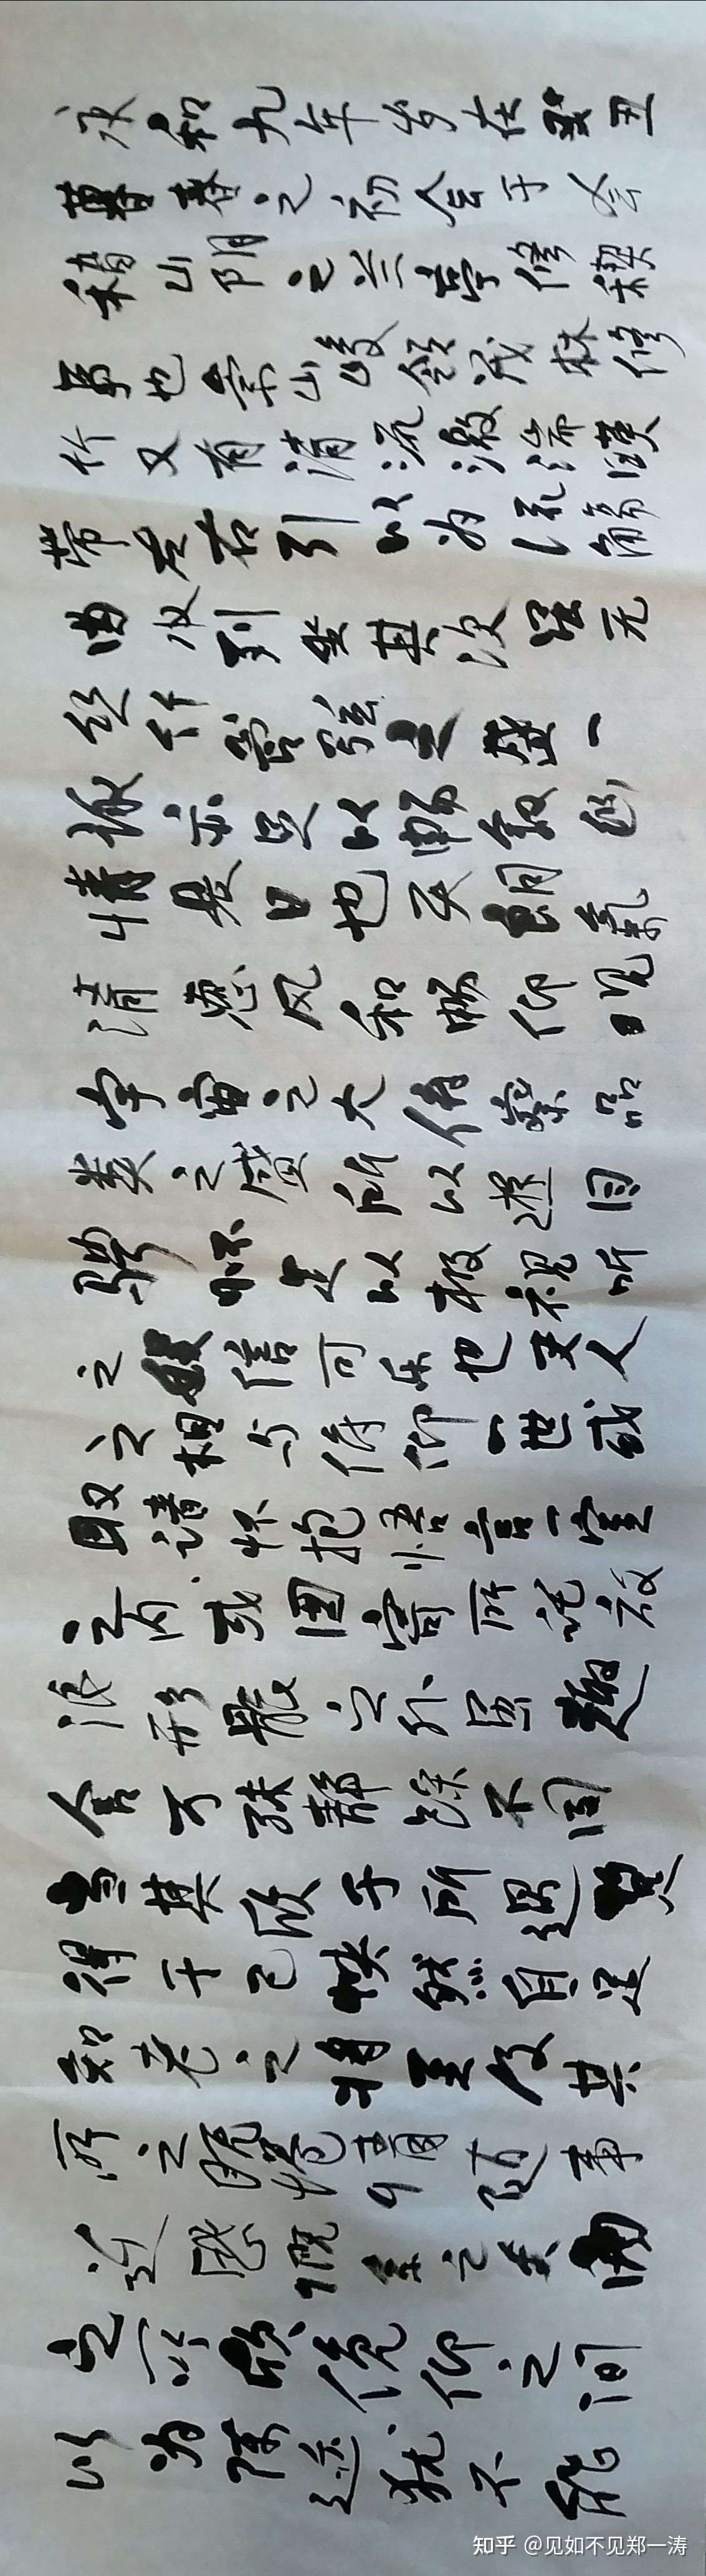 永和九年岁在癸丑
暮春之初会于会
稽山阴之兰亭修禊
事也崇山峻领茂林修
竹又有清流激湍映
带左右引以为流觞
曲水列坐其次虽无
丝竹管弦之盛一
詠亦足以畅叙幽
情是日也天朗氣
清惠风和畅仰观
宇宙之大俯察品
类之盛所以遊目
骋怀足以极视听
之娱信可乐也夫人
之相与俯仰一世或
取诸怀抱悟言一室
之内或因寄所托放
浪形骸之外虽趣
舍万殊静躁不同
当其欣于所遇暂
得于己怏然自足
知老之将至及其
所之既惓情随事
迁感慨系之矣向
之所欣俛仰之间
以为陈迹犹不能
知乎 @见如不见郑一涛